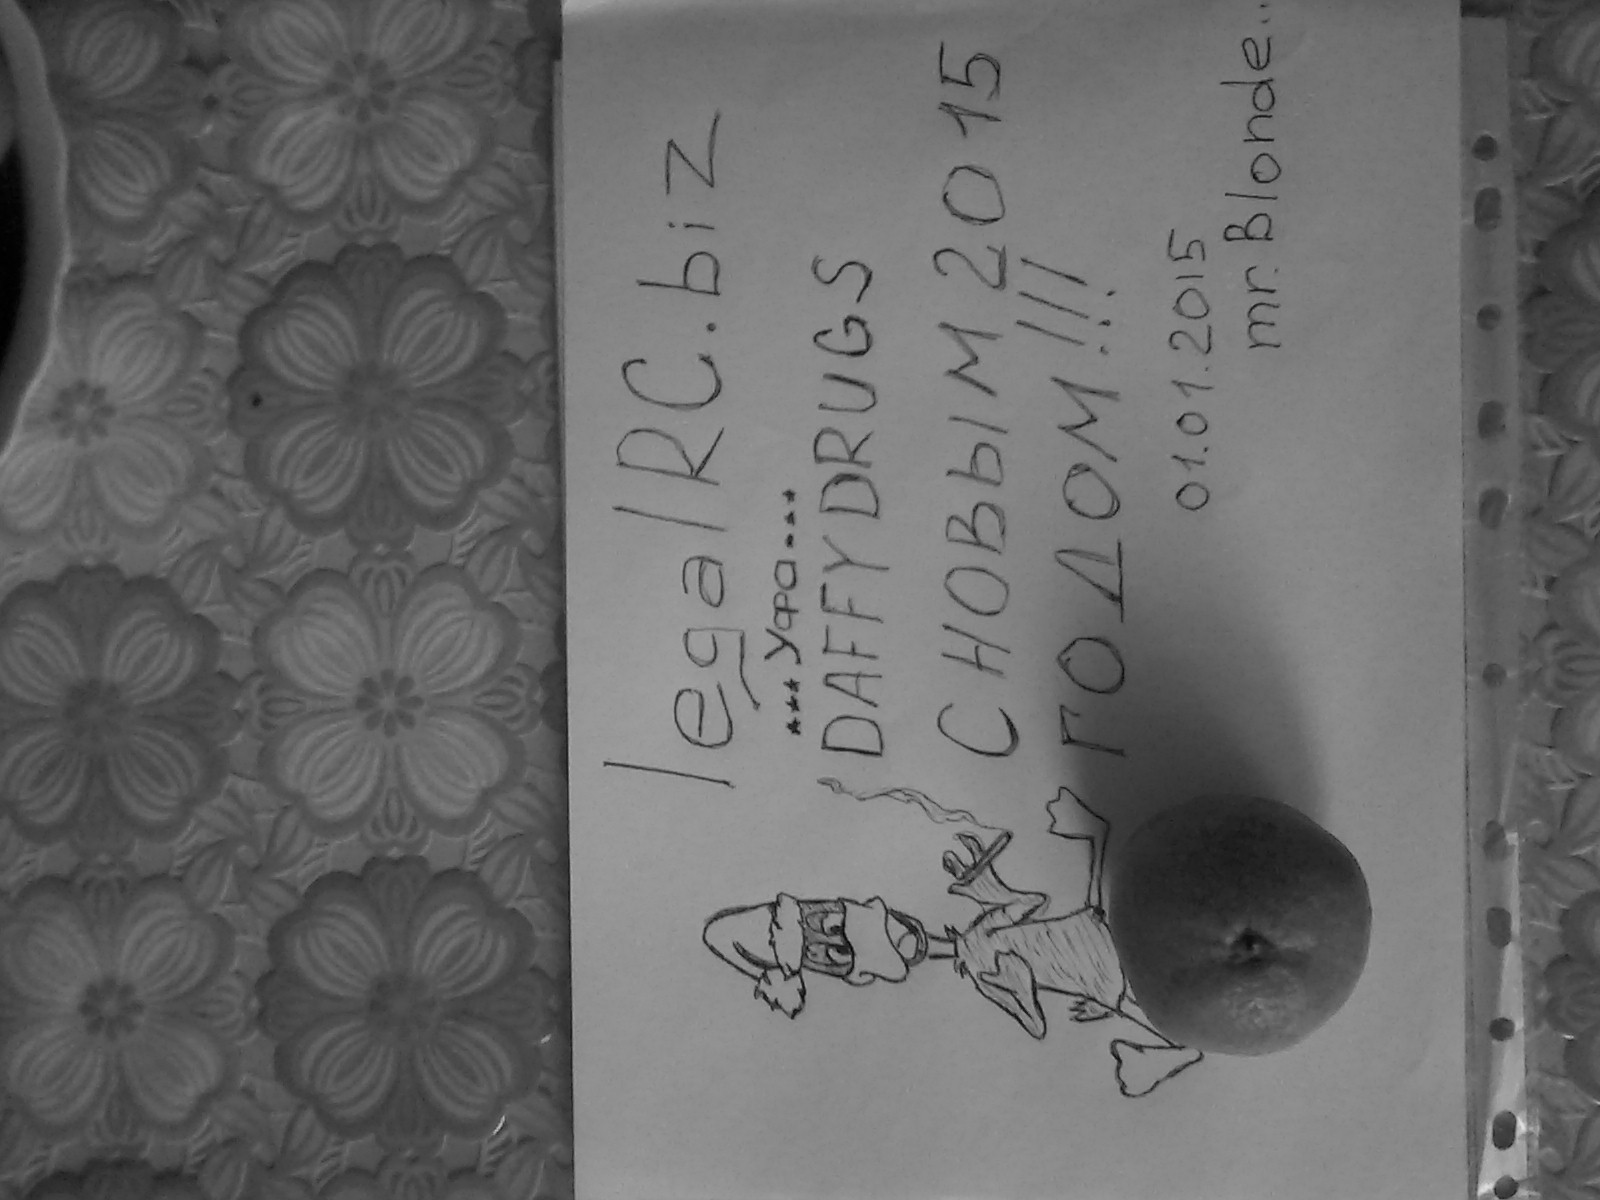 legalRC.biz
*** Уфа ***
DAFFYDRUGS
С НОВЫМ 2015
ГОДОМ!!!
01.01.2015
mr.Blonde..